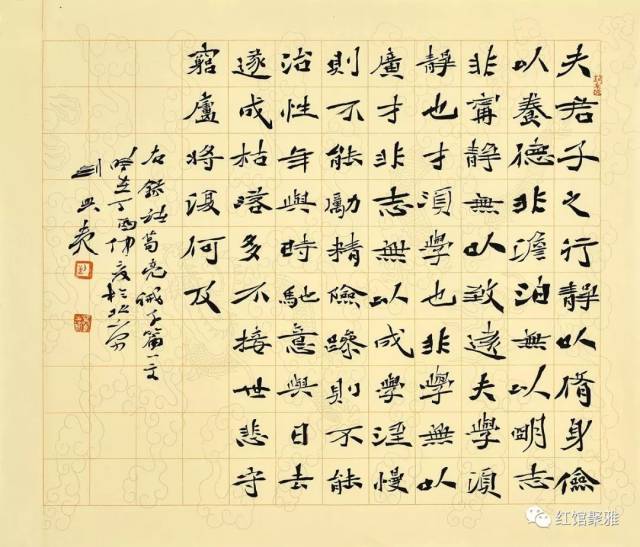 夫君子之行靜以脩身儉
以養德非澹泊無以明志
非甯靜無以致遠夫學須
靜也才須學也非學無以
廣才非志無以成學淫慢
則不能勵精險躁則不能
治性年與時馳意與日去
遂成枯落多不接世悲守
窮廬將復何及
右錄諸葛亮誡子篇一文
時在丁酉仲夏於北京
红馆聚雅